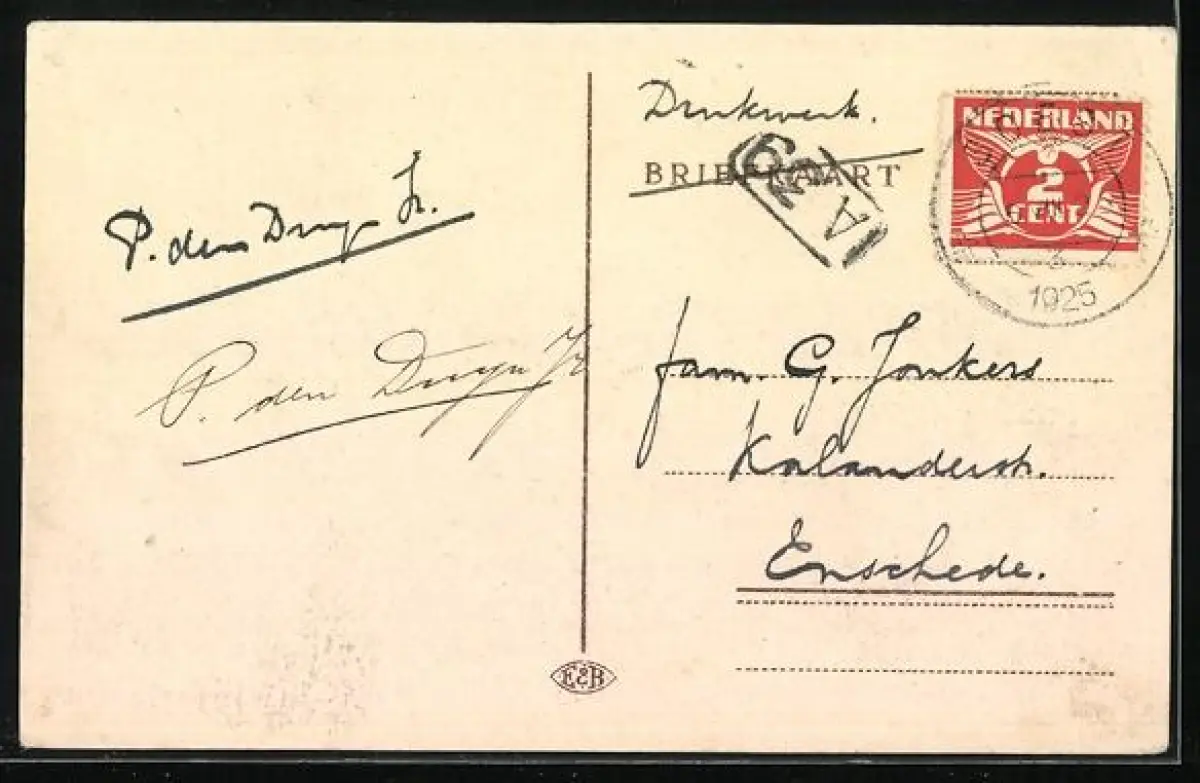 P. den Jr.
P. den Jr
Drukwerk.
BRIEFKAART
62 A
NEDERLAND
2
CENT
1925
fam. G. Jonkers
Kalanderstr.
Enschede.
E&B